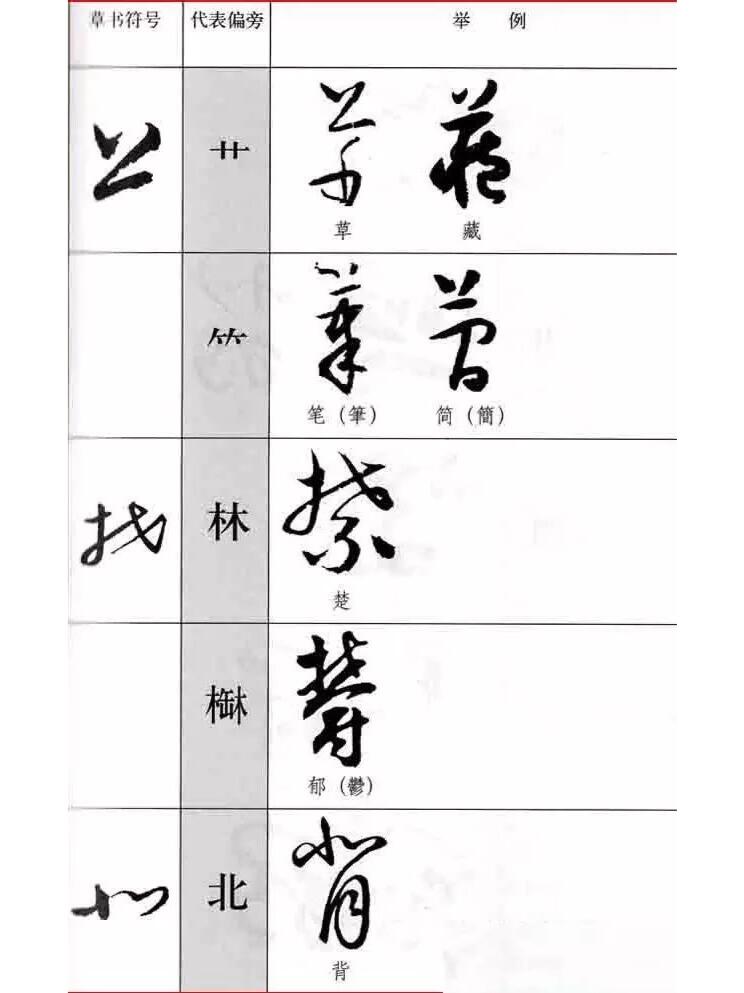 草书符号 代表偏旁 举例
艹
草 藏
⺮
笔（筆） 简（簡）
林
楚
郁（鬱）
北
背